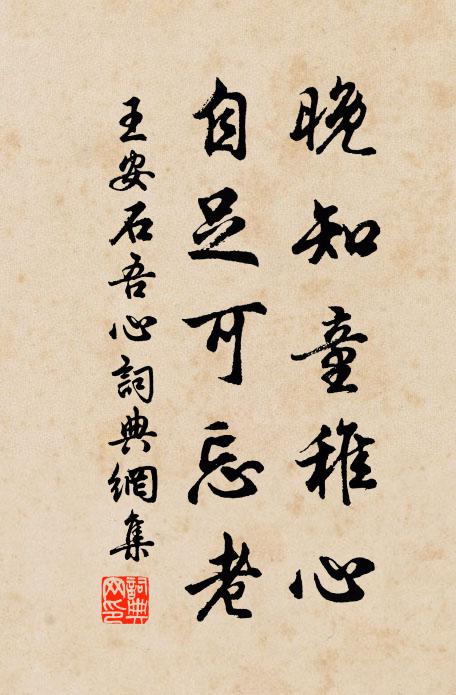 晚知童稚心
自足可忘老
王安石吾心詞典網集
詞典
网印